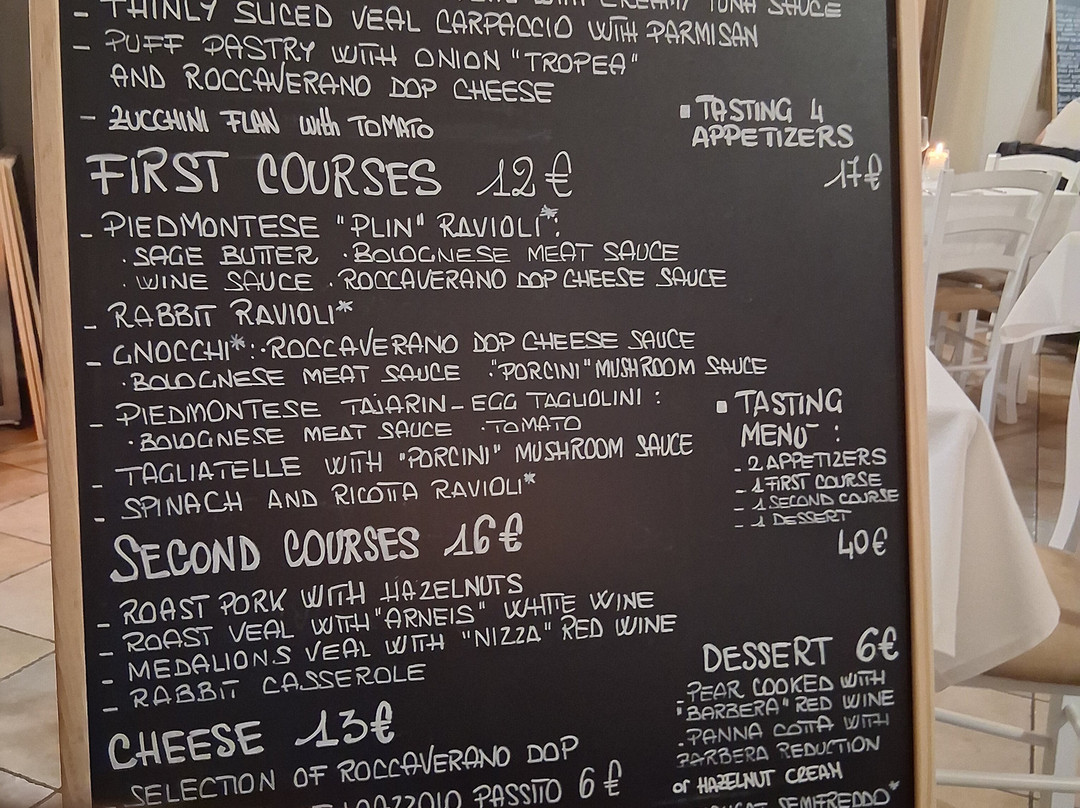 CREAMY TUNA SAUCE
- THINLY SLICED VEAL CARPACCIO WITH PARMISAN
- PUFF PASTRY WITH ONION "TROPEA"
AND ROCCAVERANO DOP CHEESE
- ZUCCHINI FLAN with TOMATO
▪ TASTING 4
APPETIZERS
17€
FIRST COURSES 12€
- PIEDMONTESE "PLIN" RAVIOLI*:
· SAGE BUTTER · BOLOGNESE MEAT SAUCE
· WINE SAUCE · ROCCAVERANO DOP CHEESE SAUCE
- RABBIT RAVIOLI*
- GNOCCHI*: · ROCCAVERANO DOP CHEESE SAUCE
· BOLOGNESE MEAT SAUCE · "PORCINI" MUSHROOM SAUCE
- PIEDMONTESE TAJARIN - EGG TAGLIOLINI :
· BOLOGNESE MEAT SAUCE · TOMATO
- TAGLIATELLE WITH "PORCINI" MUSHROOM SAUCE
- SPINACH AND RICOTTA RAVIOLI*
▪ TASTING
MENU :
- 2 APPETIZERS
- 1 FIRST COURSE
- 1 SECOND COURSE
- 1 DESSERT
40€
SECOND COURSES 16€
- ROAST PORK WITH HAZELNUTS
- ROAST VEAL WITH "ARNEIS" WHITE WINE
- MEDALIONS VEAL WITH "NIZZA" RED WINE
- RABBIT CASSEROLE
CHEESE 13€
- SELECTION OF ROCCAVERANO DOP
PASSITO 6€
DESSERT 6€
- PEAR COOKED WITH
"BARBERA" RED WINE
- PANNA COTTA WITH
BARBERA REDUCTION
or HAZELNUT CREAM
SEMIFREDDO*